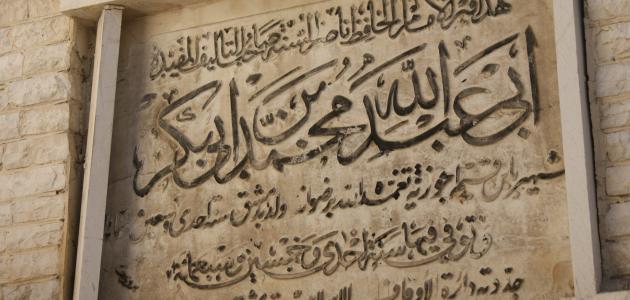 هذا قبر الإمام الحافظ ناصر السنة صاحب التآليف المفيدة
ابي عبد الله محمد بن ابي بكر
شهير بابن قيم الجوزية تغمده الله برضوانه ولد بدمشق سنة احدى وتسعين وستمائة
وتوفي فيها سنة احدى وخمسين وسبعمائة
جددته دائرة الاوقاف الاسلامية